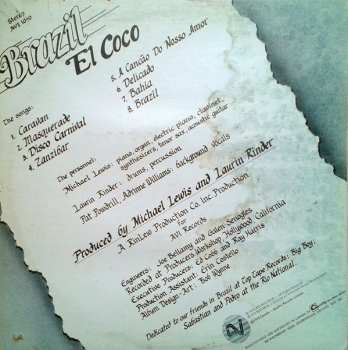 Stereo
AVI 1070
Brazil
El Coco
The songs:
1. Caravan
2. Masquerade
3. Disco Carnival
4. Zanzibar
5. A Canção Do Nosso Amor
6. Delicado
7. Bahia
8. Brazil
The personnel:
Michael Lewis: piano, organ, electric piano, clarinet,
synthesizers, tenor sax, acoustic guitar
Laurin Rinder: drums, percussion
Pat Powdrill, Adrime Williams: background vocals
Produced by Michael Lewis and Laurin Rinder
A RinLew Production Co. Inc. Production
for
AVI Records
Engineers: Joe Bellamy and Galen Senogles
Recorded at Producers Workshop, Hollywood California
Executive Producers: Ed Cobb and Ray Harris
Production Assistant: Erin
Album Design/Art: Bob Wynne
Dedicated to our friends in Brazil at Top Tape Records: Big Boy,
Sabastian and Pedro at the Rio National.